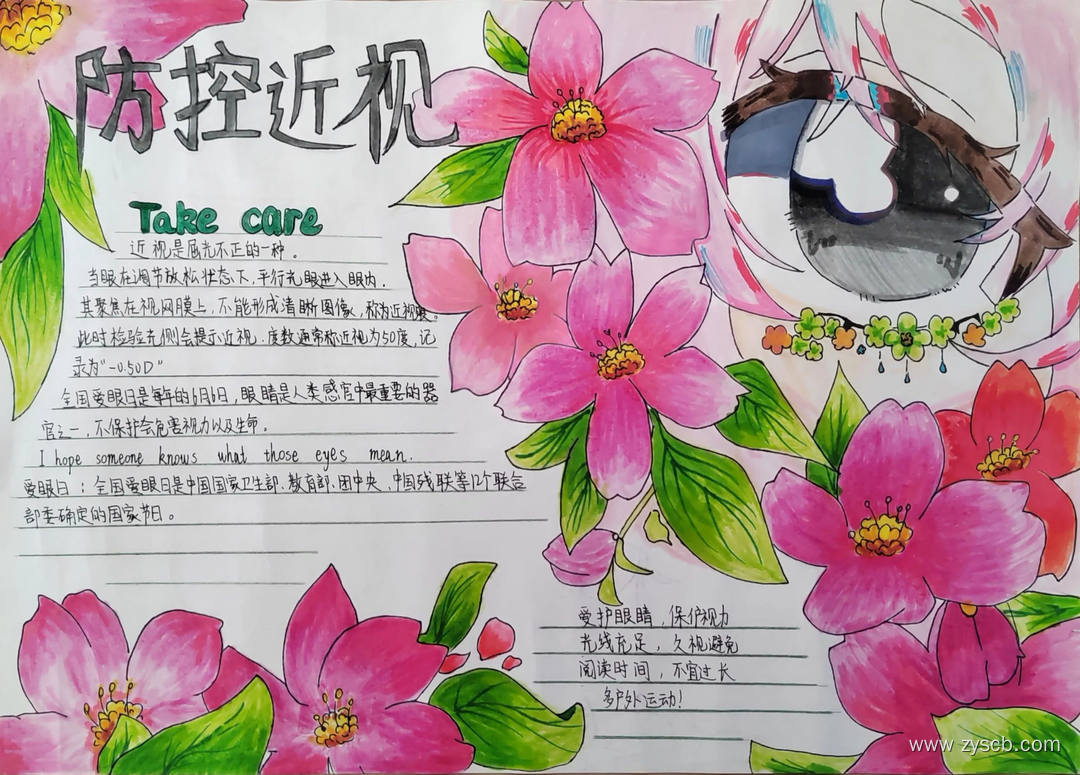 防控近视
Take care
近视是屈光不正的一种。
当眼在调节放松状态下,平行光眼进入眼内.
其聚焦在视网膜上,不能形成清晰图像,称为近视眼。
此时检验光侧会提示近视.度数通常称近视为50度,记
录为"-0.50D"
全国爱眼日是每年的6月6日,眼睛是人类感官中最重要的器
官之一,不保护会危害视力以及生命.
I hope someone knows what those eyes mean.
爱眼日:全国爱眼日是中国国家卫生部、教育部、团中央、中国残联等12个联合
部委确定的国家节日。
爱护眼睛,保护视力
光线充足,久视避免
阅读时间,不宜过长
多户外运动!
www.zyscb.com